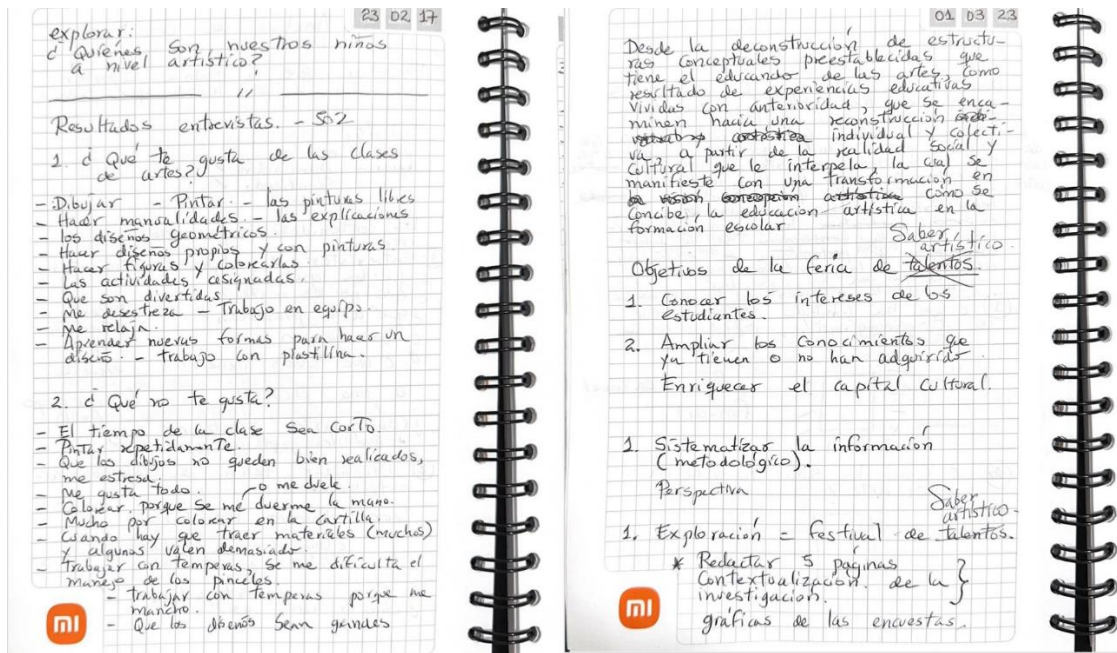 23 02 17
explorar:
¿ Quiénes son nuestros niños
a nivel artístico?
"
Resultados entrevistas. - 502
1. ¿ Qué te gusta de las clases
de artes?
- Dibujar - Pintar - las pinturas libres
- Hacer manualidades. - las explicaciones
- los diseños geométricos.
- Hacer diseños propios y con pinturas.
- Hacer figuras y colorearlas.
- Las actividades asignadas.
- Que son divertidas.
- Me desestreza - Trabajo en equipo.
- Me relaja.
- Aprender nuevas formas para hacer un
diseño. - trabajo con plastilina.
2. ¿ Qué no te gusta?
- El tiempo de la clase sea corto.
- Pintar repetidamente.
- Que los dibujos no queden bien realizados,
me estresa.
- Me gusta todo.
o me duele.
- Colorear, porque se me duerme la mano.
- Mucho por colorear en la cartilla.
- Cuando hay que traer materiales (muchos)
y algunos valen demasiado.
- Trabajar con temperas, se me dificulta el
manejo de los pinceles.
- trabajar con temperas porque me
mancho.
- Que los diseños sean grandes
mi
01 03 23
Desde la deconstrucción de estructu-
ras conceptuales preestablecidas que
tiene el educando de las artes, como
resultado de experiencias educativas
vividas con anterioridad, que se enca-
minen hacia una reconstrucción
artística individual y colecti-
va, a partir de la realidad social y
cultural que le interpela, la cual se
manifieste con una transformación en
la visión concepción artística como se
concibe, la educación artística en la
formación escolar
Saber
artístico.
Objetivos de la feria de talentos.
1. Conocer los intereses de los
estudiantes.
2. Ampliar los conocimientos que
ya tienen o no han adquirido
Enriquecer el capital cultural.
1. Sistematizar la información
(metodológico).
Perspectiva
Saber
artístico.
1. Exploración = festival de talentos.
* Redactar 5 páginas
Contextoalización de la }
investigación.
gráficas de las encuestas.
mi